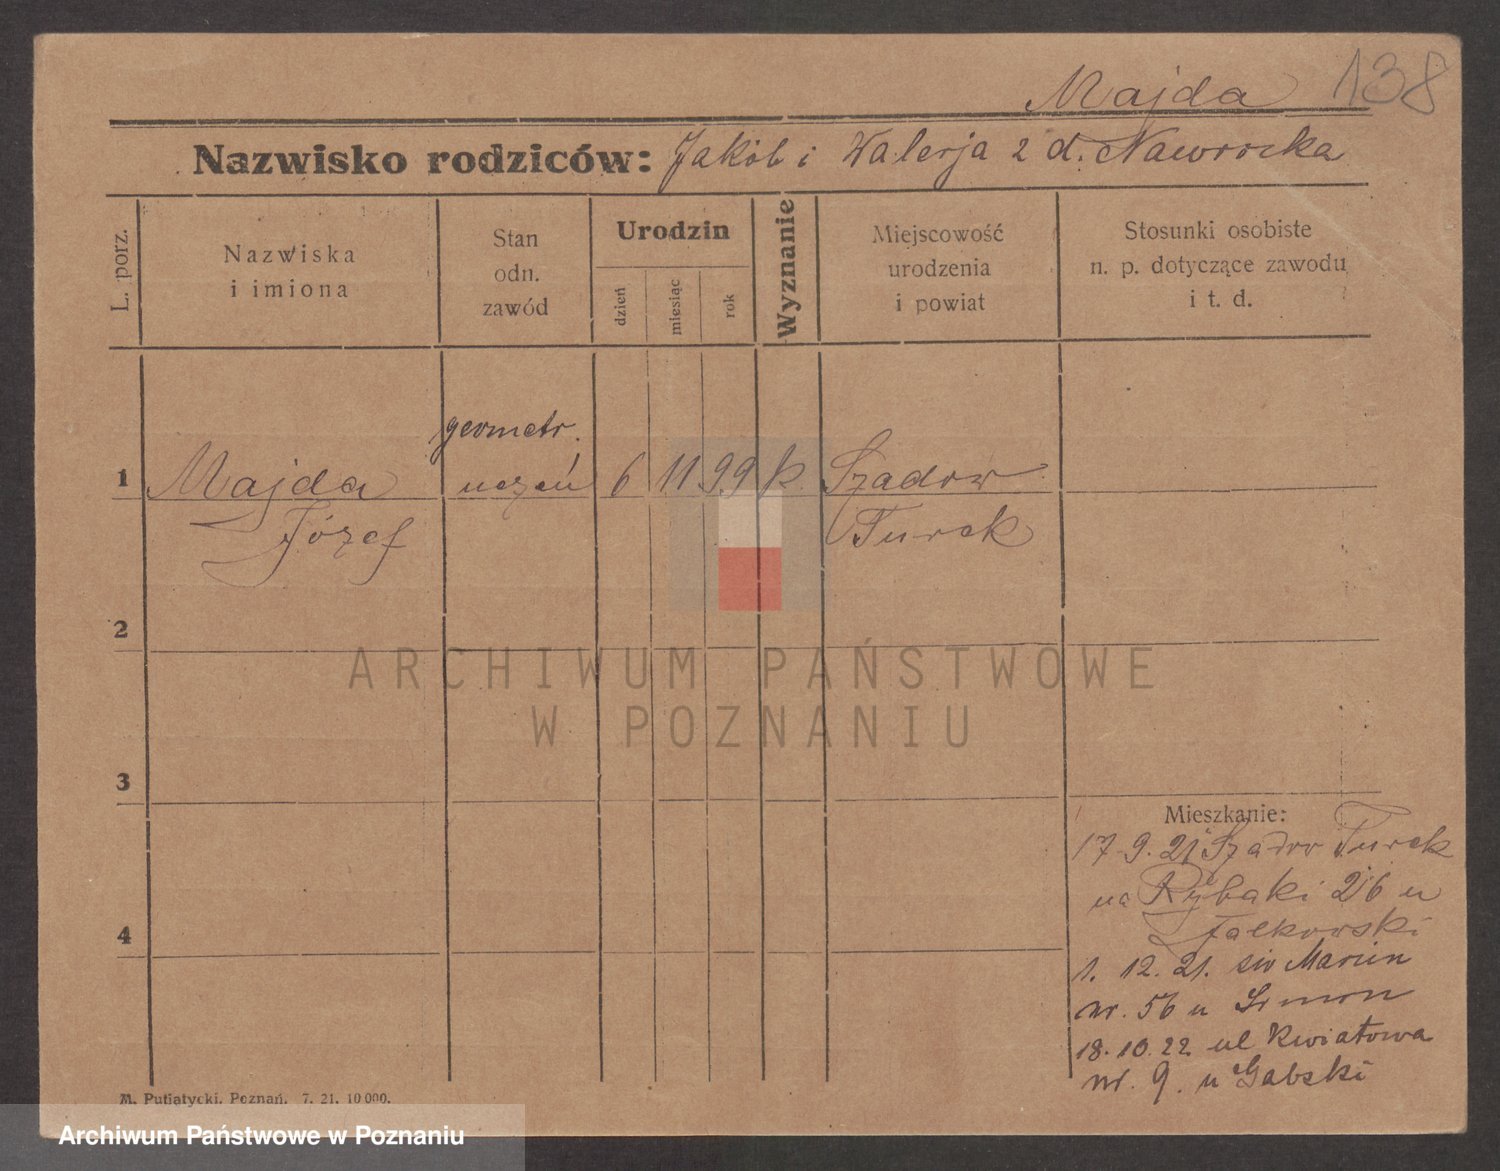 Majda 138
Nazwisko rodziców: Jakób i Walerja z d. Nawrocka
L. porz.
Nazwiska
i imiona
Stan
odn.
zawód
Urodzin
dzień
miesiąc
rok
Wyznanie
Miejscowość
urodzenia
i powiat
Stosunki osobiste
n. p. dotyczące zawodu
i t. d.
geometr.
1 Majda uczeń 6 11 99 k. Szadow
Józef Turek
2
3
4
Mieszkanie:
17. 9. 21 Szadow Turek
na Rybaki 26 u
Falkowski
1. 12. 21. św Marcin
nr. 56 u
18. 10. 22 ul Kwiatowa
nr. 9. u Gabski
M. Putiatycki, Poznań. 7. 21. 10 000.
ARCHIWUM PAŃSTWOWE
W POZNANIU
Archiwum Państwowe w Poznaniu